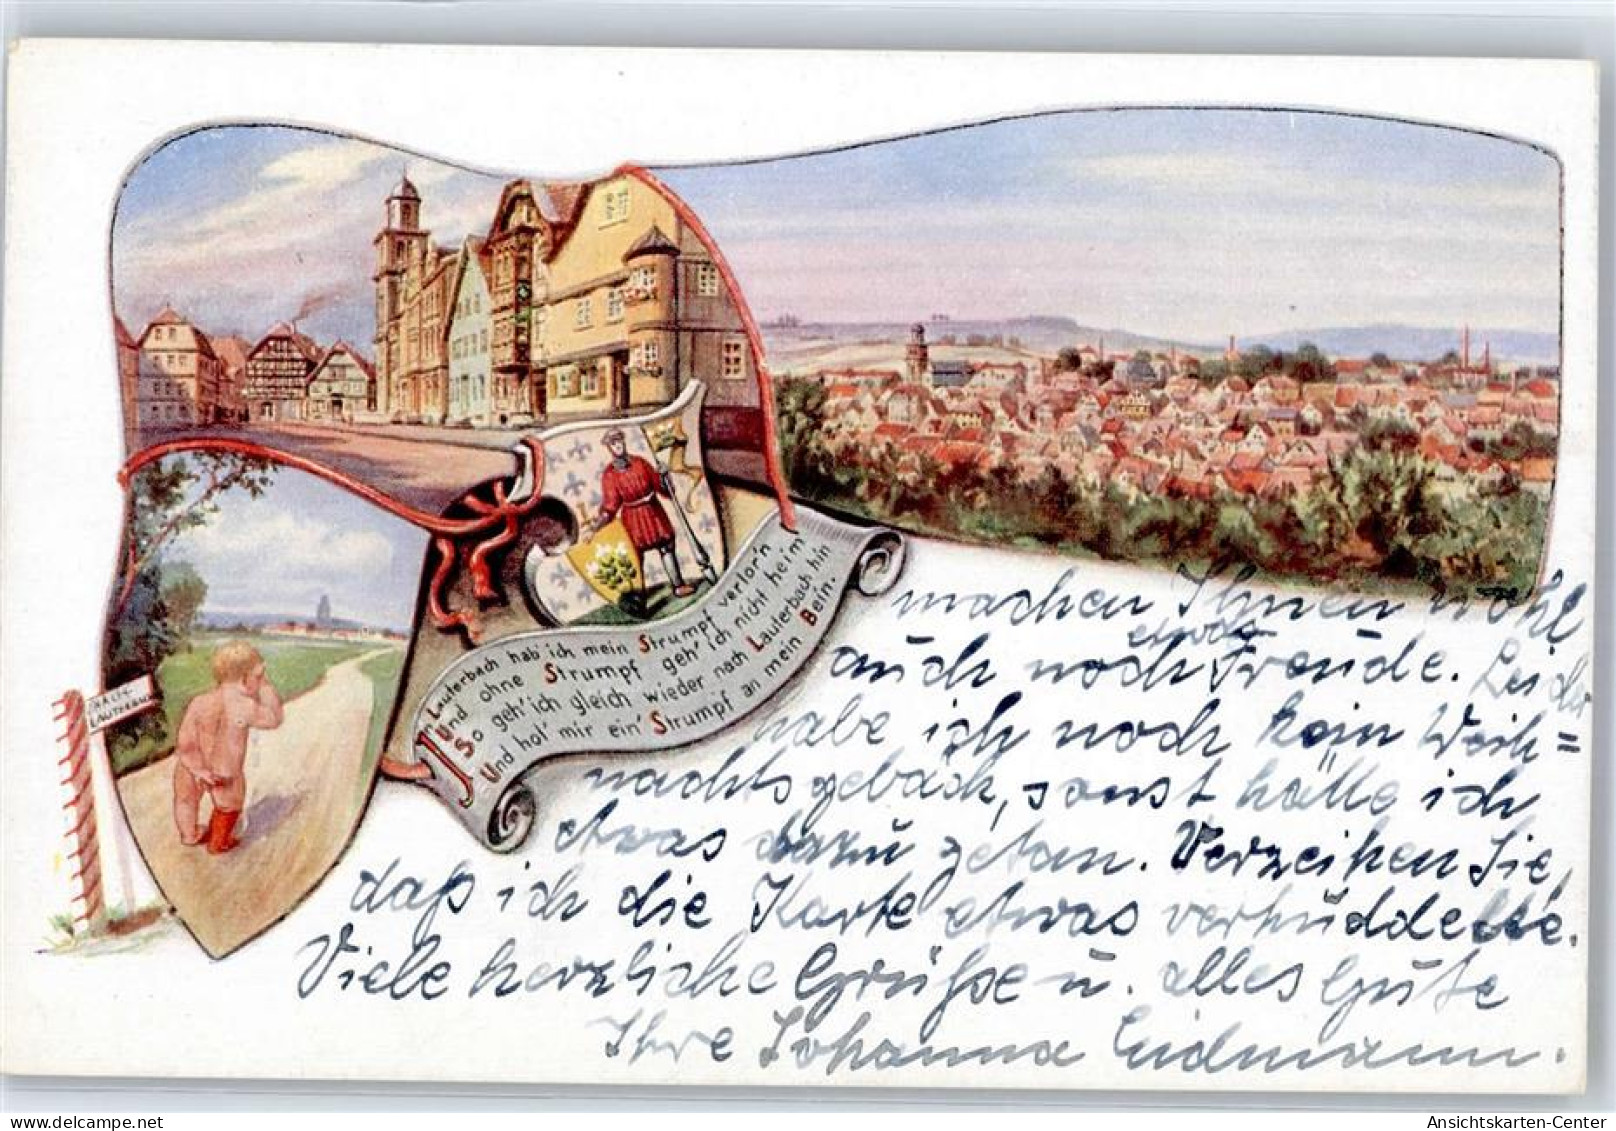 NACH
LAUTERBACH
In Lauterbach hab' ich mein Strumpf verlor'n
Und ohne Strumpf geh' ich nicht heim
So geh' ich gleich wieder nach Lauterbach hin
Und hol' mir ein' Strumpf an mein Bein.
machen Ihnen wohl
etwas
auch noch Freude. Leider
habe ich noch kein Weih=
nachtsgebäck, sonst hätte ich
etwas dazu getan. Verzeihen Sie,
daß ich die Karte etwas verhuddelte.
Viele herzliche Grüße u. alles Gute
Ihre Johanna Eidmann.
Ansichtskarten-Center